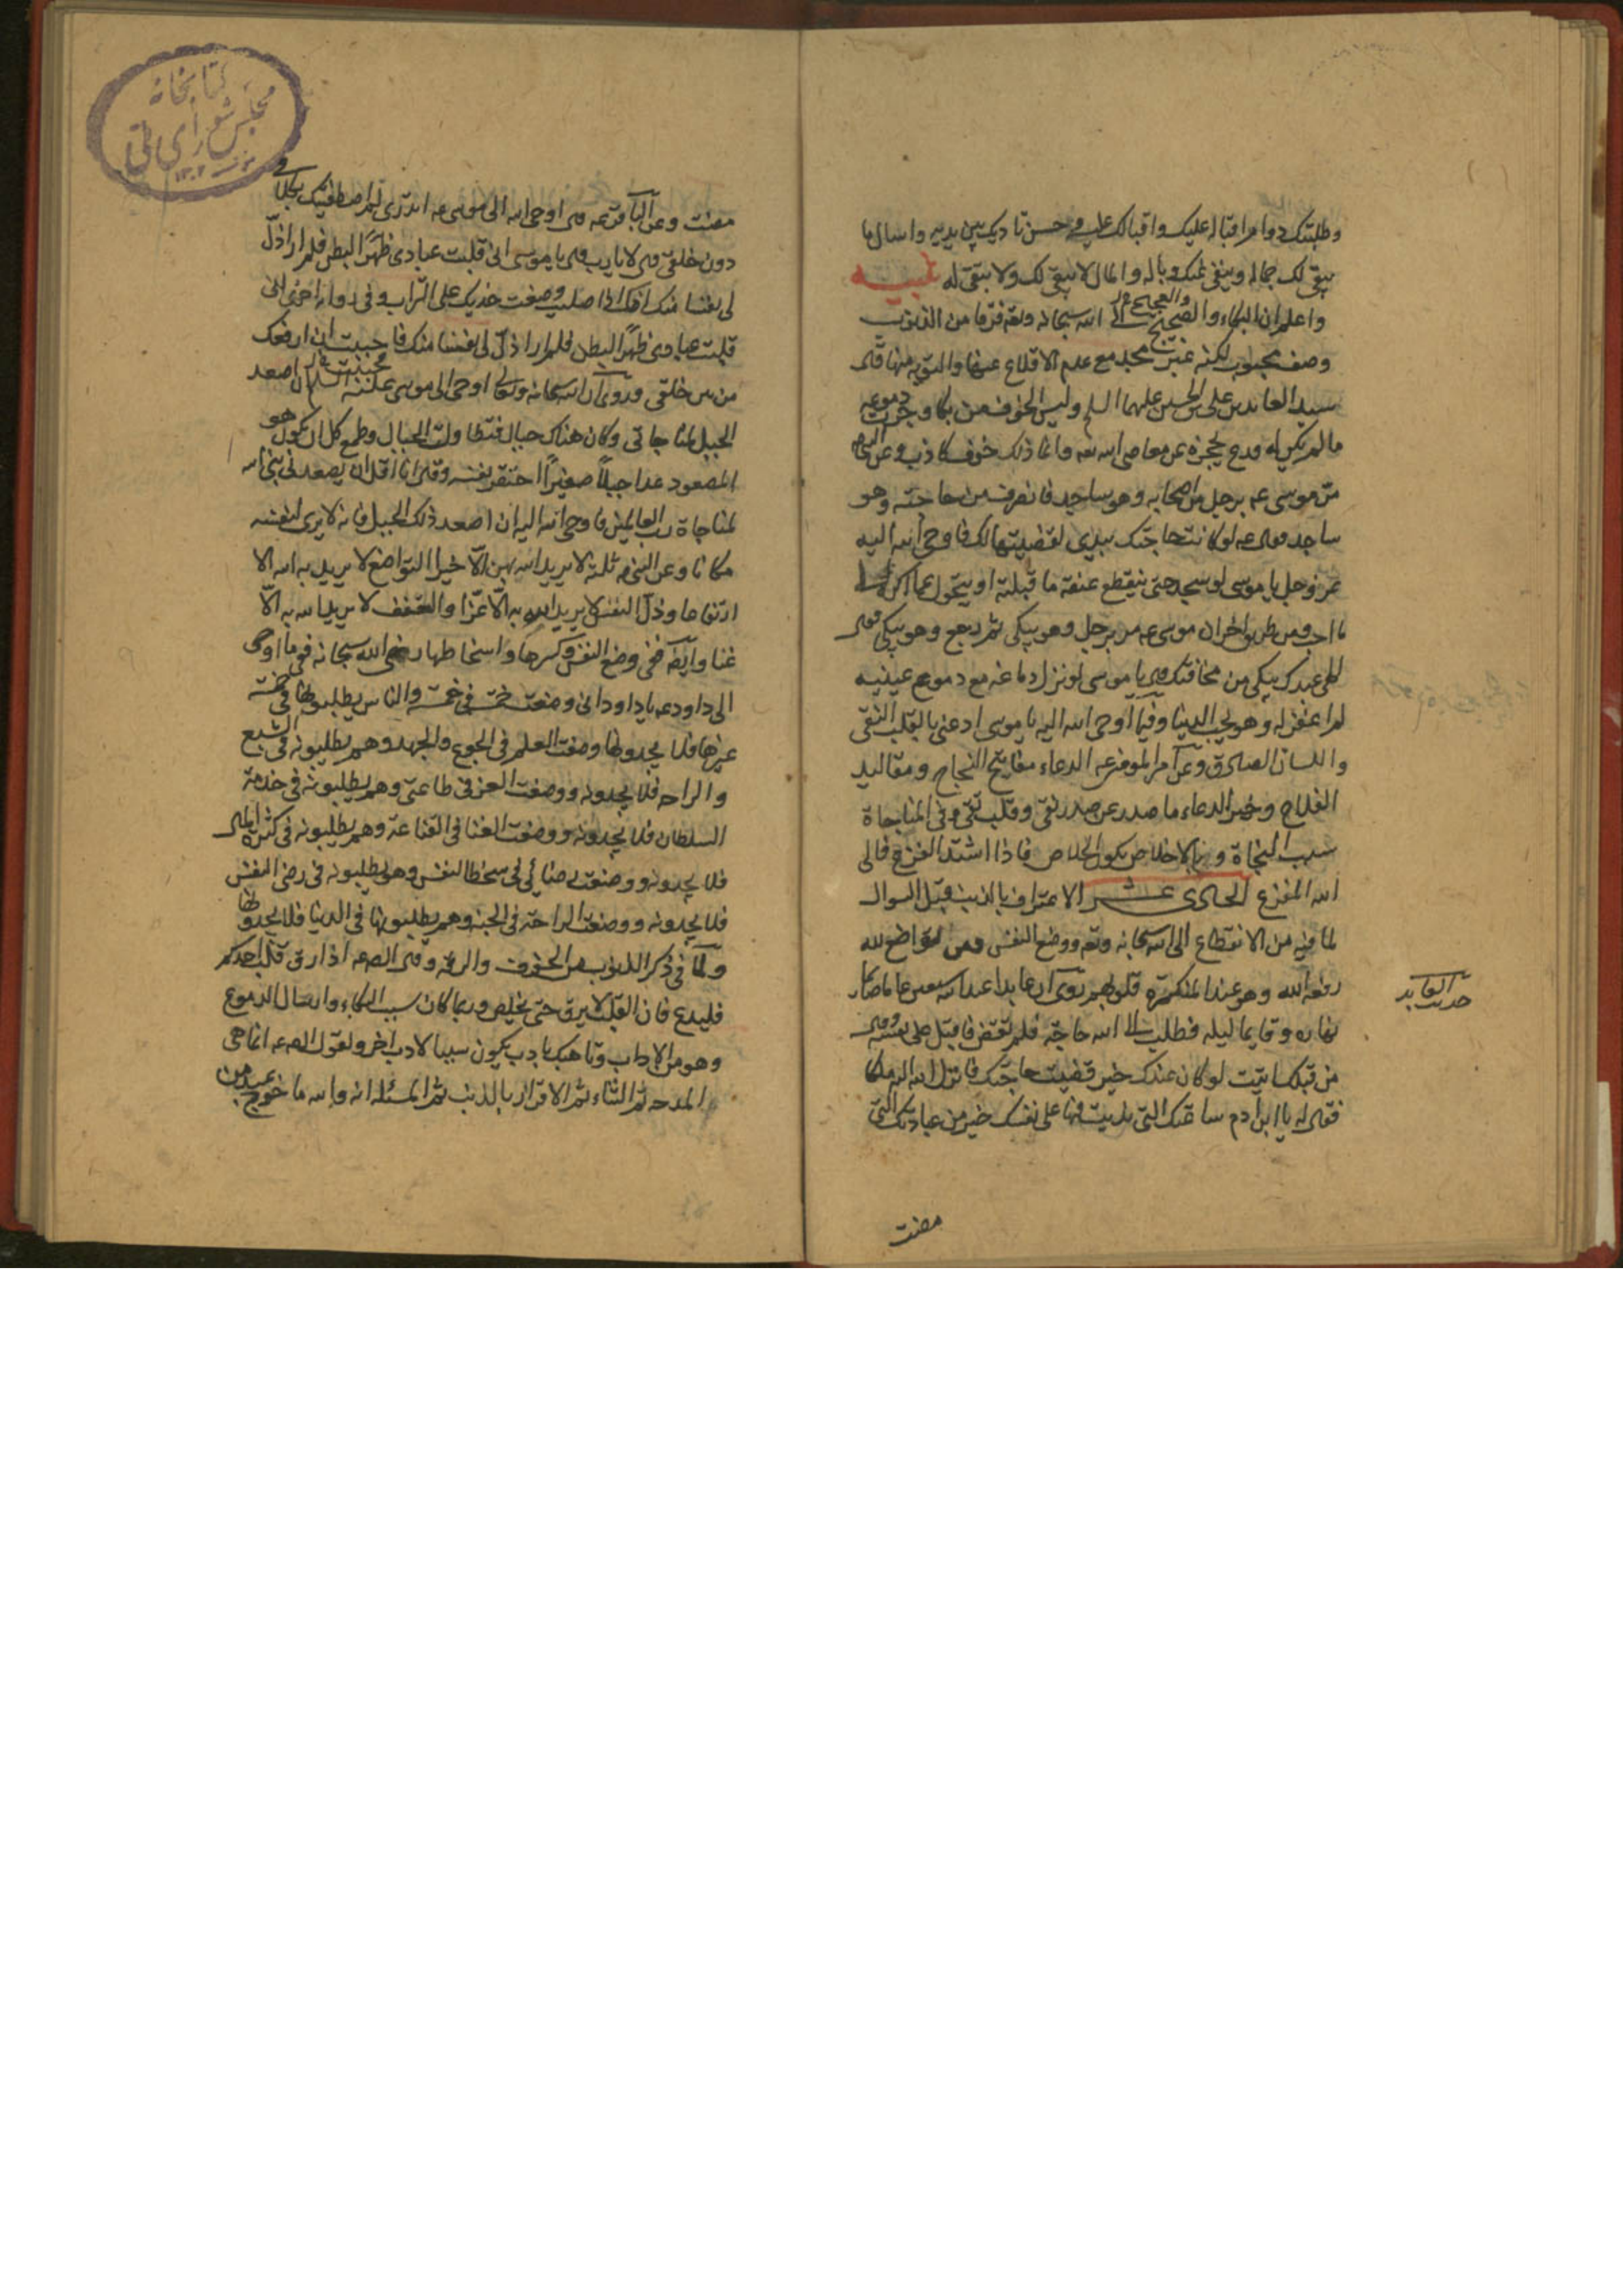 وطلبتك دوام اقباله عليك واقبالك عليه وحسن تاديبك بين يديه واسال ما
يبقى لك جماله وينفى عنك وباله والمال لا يبقى لك ولا تبقى له تنبيه
واعلم ان البكاء والعجيج الى الله سبحانه وتعه فرقا من الذنوب
وصف محبوب لكنه غير مجد مع عدم الاقلاع عنها والتوبة منها قال
سيد العابدين على بن الحسين عليهما السلم وليس الخوف من بكا وجرت دموعه
ما لم يكن له ورع يحجزه عن معاصى الله تعه وانما ذلك خوف كاذب وعن النبى
مر موسى عه برجل من اصحابه وهو ساجد فانصرف من حاجته وهو
ساجد فقال عه لو كانت حاجتك بيدى لقضيتها لك فاوحى الله اليه
عز وجل يا موسى لو سجد حتى ينقطع عنقه ما قبلته او يتحول عما اكره الى
ما احب ومن طريق اخر ان موسى عه مر برجل وهو يبكى ثم رجع وهو يبكى فقال
الهى عبدك يبكى من مخافتك قال يا موسى لو نزل دماغه مع دموع عينيه
لم اغفر له وهو يحب الدنيا وفيما اوحى الله اليه يا موسى ادعنى بالقلب النقى
واللسان الصادق وعن امير المومنين عه الدعاء مفاتيح النجاح ومقاليد
الفلاح وخير الدعاء ما صدر عن صدر نقى وقلب تقى وفى المناجاة
سبب النجاة وبالاخلاص يكون الخلاص فاذا اشتد الفزع فالى
الله المفزع الحادى عشر الاعتراف بالذنب قبل السوال
لما فيه من الانقطاع الى الله سبحانه وتعه ووضع النفس ومن تواضع لله
رفعه الله وهو عند المنكسرة قلوبهم روى ان عابدا عبد الله سبعين عاما صائما
نهاره وقايما ليله فطلب الى الله حاجة فلم تقض فاقبل على نفسه وقال
من قبلك اتيت لو كان عندك خير قضيت حاجتك فانزل الله اليه ملكا
فقال له يا ابن ادم ساعتك التى ازريت فيها على نفسك خير من عبادتك التى
حديث العابد
مضت
كتابخانه
مجلس شوراى ملى
مضت وعن الباقر عه قال اوحى الله الى موسى عه اتدرى لم اصطفيتك بكلامى
دون خلقى قال لا يا رب قال يا موسى انى قلبت عبادى ظهرا لبطن فلم ار اذل
لى نفسا منك انك اذا صليت وضعت خديك على التراب وفى رواية اخرى انى
قلبت عبادى ظهرا لبطن فلم ار اذل لى نفسا منك فاحببت ان ارفعك
من بين خلقى وروى ان الله سبحانه وتعالى اوحى الى موسى ان اصعد
الجبل لمناجاتى وكان هناك جبال فتطاولت الجبال وطمع كل ان يكون هو
المصعود عدا جبلا صغيرا احتقر نفسه وقال انا اقل ان يصعدنى نبى الله
لمناجاة رب العالمين فاوحى الله اليه ان اصعد ذلك الجبل فانه لا يرى لنفسه
مكانا وعن النبى ص ثلثة لا يزيد الله بهن الا خيرا التواضع لا يزيد به الله الا
ارتفاعا وذل النفس لا يزيد الله به الا عزا والتعفف لا يزيد الله به الا
غنا وايضا ففى وضع النفس وكسرها واسخاطها رضى الله سبحانه ففى ما اوحى
الى داود عه يا داود انى وضعت خمسة فى خمسة والناس يطلبونها فى خمسة
غيرها فلا يجدونها وضعت العلم فى الجوع والجهد وهم يطلبونه فى الشبع
والراحه فلا يجدونه ووضعت العز فى طاعتى وهم يطلبونه فى خدمة
السلطان فلا يجدونه ووضعت الغنا فى القناعة وهم يطلبونه فى كثرة المال
فلا يجدونه ووضعت رضائى فى سخط النفس وهم يطلبونه فى رضى النفس
فلا يجدونه ووضعت الراحة فى الجنة وهم يطلبونها فى الدنيا فلا يجدونها
ولما فى ذكر الذنوب من الخوف والرقة وقال الصه عه اذا رق قلب احدكم
فليدع فان القلب لا يرق حتى يخلص وربما كان سبب البكاء وارسال الدموع
وهو من الاداب وناهيك بادب يكون سببا لادب اخر ولقول الصه عه انما هى
المدحه ثم الثناء ثم الاقرار بالذنب ثم المسئله انه والله ما خرج عبد من